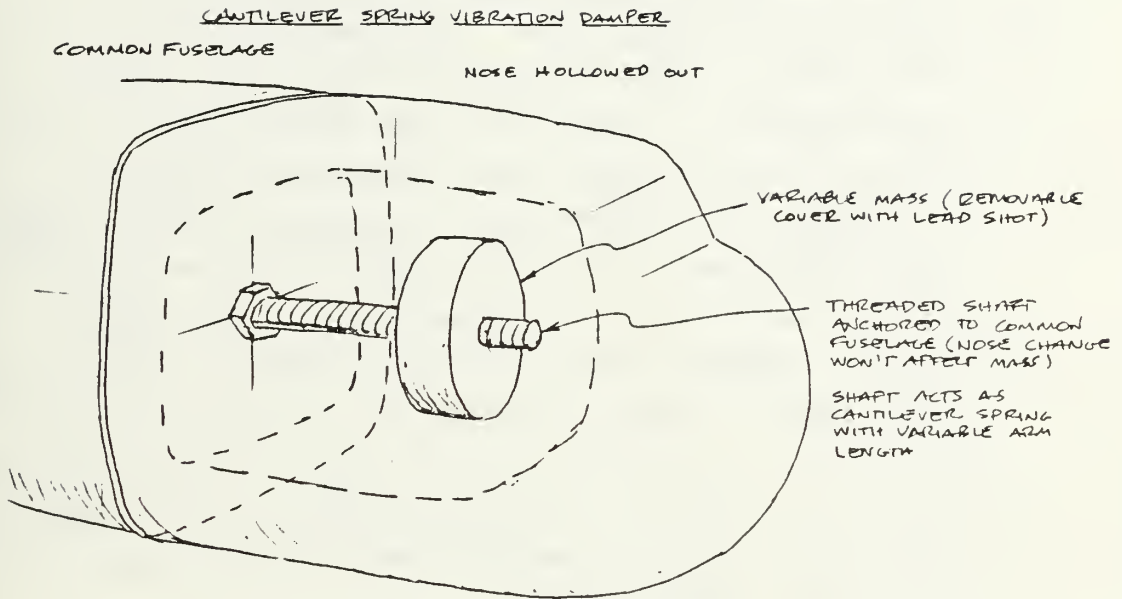 CANTILEVER SPRING VIBRATION DAMPER
COMMON FUSELAGE
NOSE HOLLOWED OUT
VARIABLE MASS (REMOVABLE
COVER WITH LEAD SHOT)
THREADED SHAFT
ANCHORED TO COMMON
FUSELAGE (NOSE CHANGE
WON'T AFFECT MASS)
SHAFT ACTS AS
CANTILEVER SPRING
WITH VARIABLE ARM
LENGTH